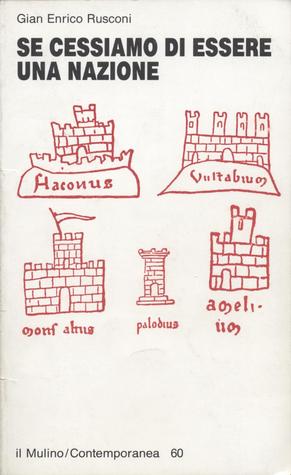 Gian Enrico Rusconi
SE CESSIAMO DI ESSERE
UNA NAZIONE
flaconus
Vultabium
mons altus
palodius
ameli-
um
il Mulino/Contemporanea 60